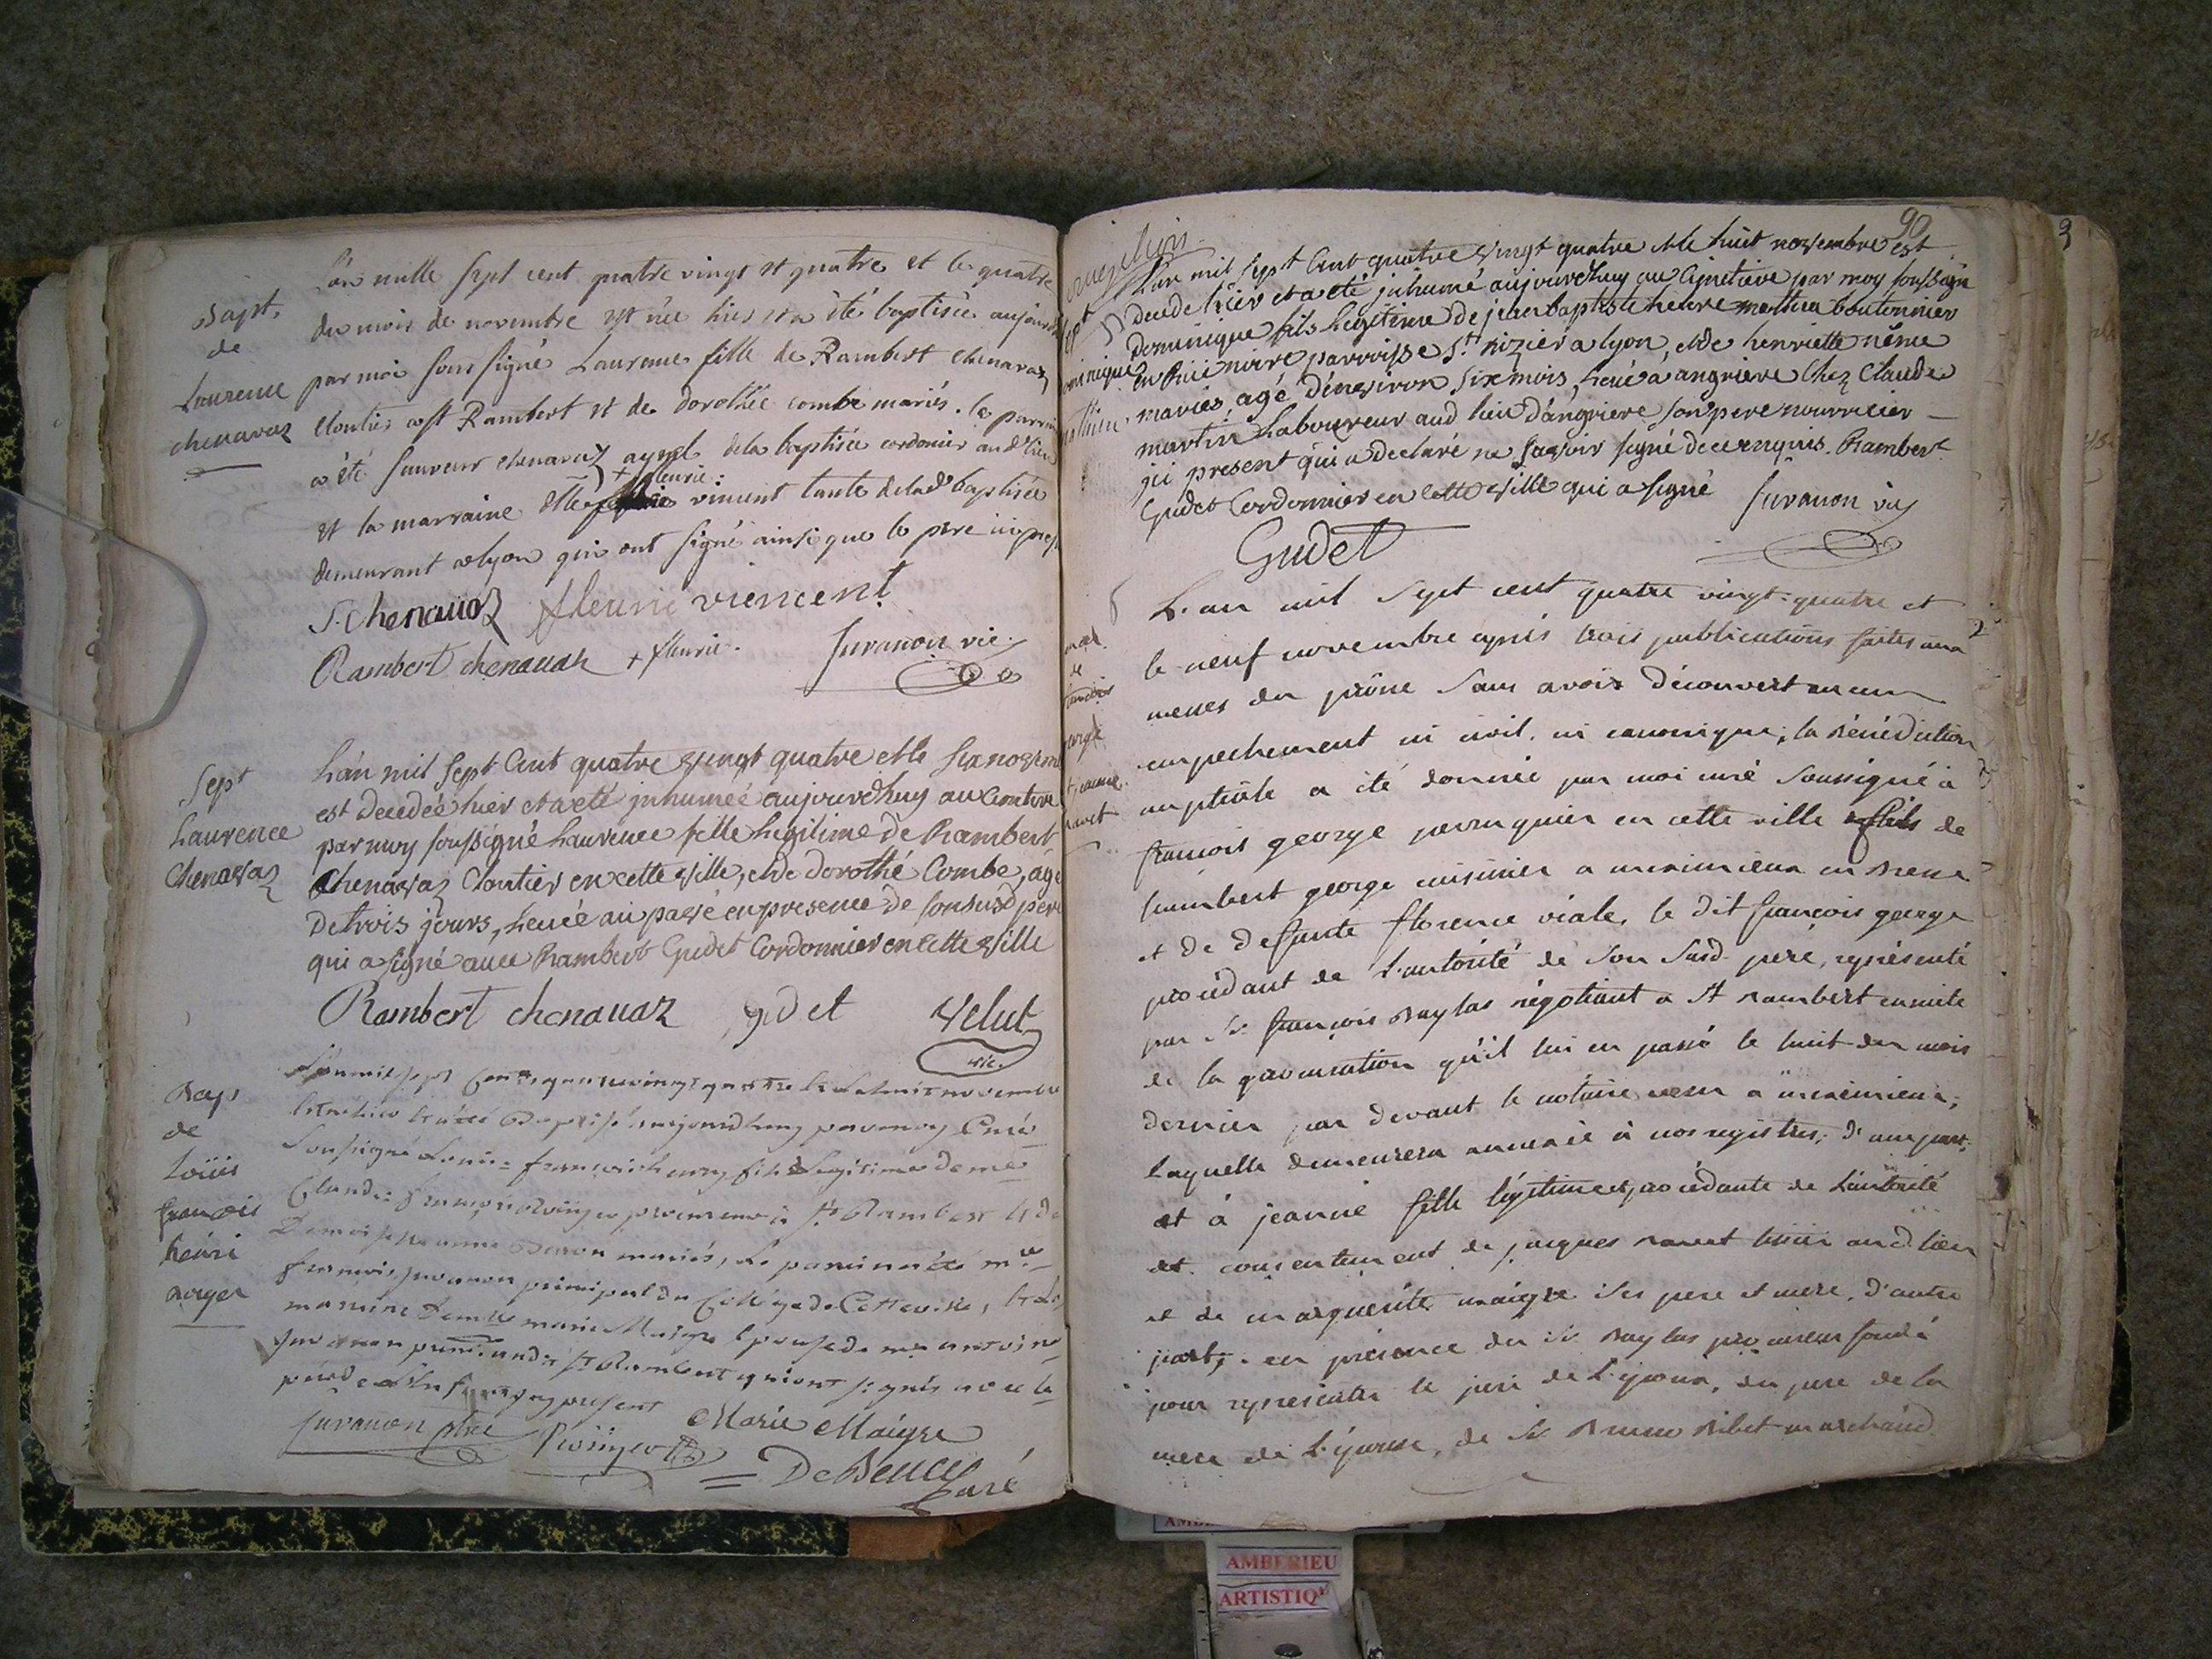 Bapt.
de
Laurence
chenavaz
L'an mille sept cent quatre vingt et quatre et le quatre
du mois de novembre est née hier et a été baptisée aujourd
par moi sous signé Laurence fille de Rambert chenavaz
cloutier a st Rambert et de dorothée combe mariés. le parrain
a été sauveur chenavaz ayeul de la baptisée cordonier aud lieu
et la marraine + fleurie vincent tante de lad baptisée
demeurant a lyon qui ont signé ainsi que le pere
S. chenauaz fleurie viencent
Rambert chenauaz + fleurie. Juvanon vic.
Sept
Laurence
Chenavaz
L'an mil sept cent quatre vingt quatre et le six novem
est decedée hier et a eté inhumée aujourdhuy au cimetiere
par moy soussigné Laurence fille legitime de Rambert
Chenavaz Cloutier en cette ville, et de dorothé Combe, agé
de trois jours, en presence de pere
qui a signé avec Rambert Gudet Cordonnier en cette ville
Rambert chenauaz gudet Velut
vic.
Bap.
de
Loüis
françois
henri
L'an mil sept cent quatre vingt quatre et le huit novembre
est né hier et a été baptisé aujourdhuy par moy Curé
soussigné Louis françois henry fils legitime de me
Claude françois procureur à st Rambert et de
Demoiselle anne mariés, Le parrain a été mre
françois juvanon principal du College de Cette ville, et la
marraine Demlle marie Maigre Epouse de me antoine
juvanon st Rambert qui ont signés avec le
pere de present
Juvanon ptre Marie Maigre
De Beucy
Curé
90
L'an mil sept Cent quatre vingt quatre et le huit novembre est
decedé hier et a eté inhumé aujourdhuy au Cimetiere par moy soussigné
dominique fils legitime de jean baptiste mathieu boutonnier
en Ruë noire parroisse St. nizier a lyon, et de henriette
mariés agé d'environ six mois, a angrieve Chez Claude
martin Laboureur aud lieu d'angrieve son pere nourricier
ici present qui a declaré ne sçavoir signé de ce enquis. Rambert
Gudet Cordonnier en cette ville qui a signé Juvanon vic
Gudet
L'an mil sept cent quatre vingt-quatre et
le neuf novembre après trois publications faites aux
messes du prône sans avoir découvert aucun
empechement ni civil, ni canonique, la Bénédiction
nuptiale a été donnée par moi curé soussigné à
françois george perruquier en cette ville fils de
humbert george cuisinier a meximieux en Bresse
et de defunte florence viale, le dit françois george
procédant de L'autorité de son susd pere, représenté
par Sr. françois Baylas négotiant a St Rambert ensuite
de la procuration qu'il lui en passé le huit du mois
dernier par devant le notaire a meximieux,
laquelle demeurera annexée à nos registres, d'une part,
et à jeanne fille légitime et procédante de L'autorité
et consentement de jacques ravet aud. lieu
et de marguerite maigre ses pere et mere, d'autre
part, en présence du Sr Baylas procureur fondé
pour representer le pere de L'époux, du pere de la
mere de L'épouse, de Sr Bruno Ribet marchand
AMBERIEU
ARTISTIQ